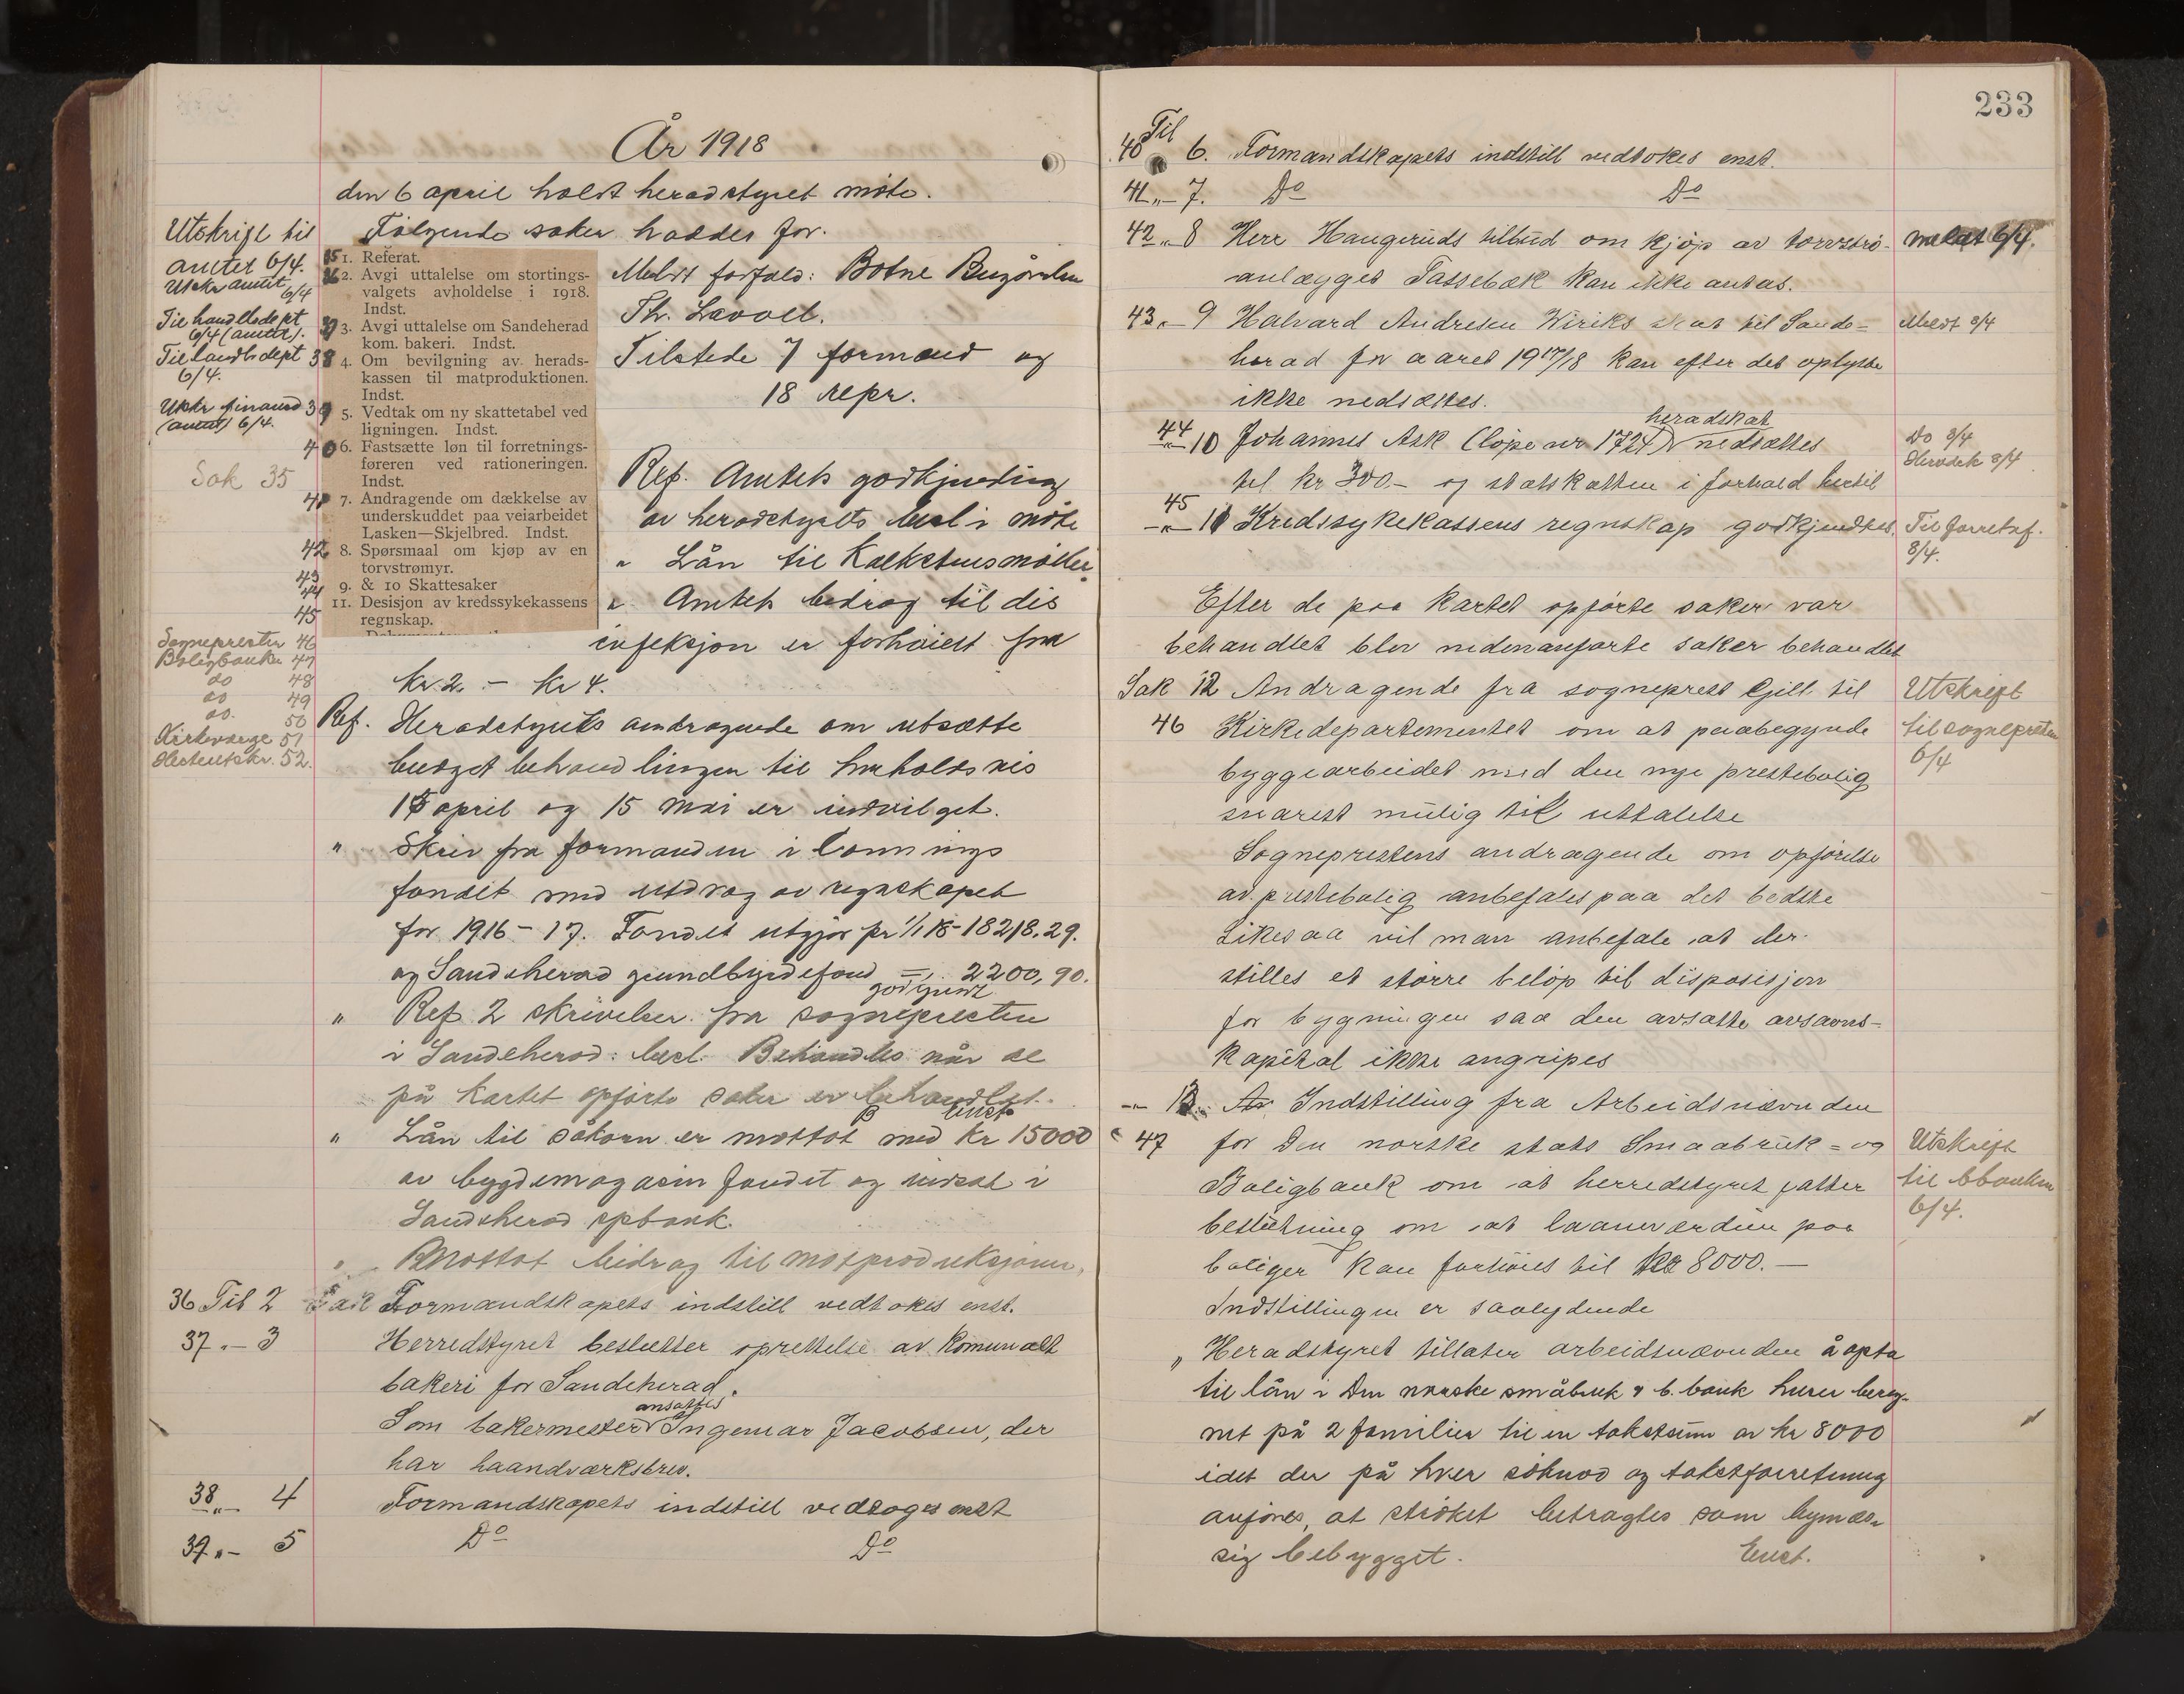 År 1918
den 6 april holdt heradstyret møte.
Følgende saker haddes for.
Utskrift til
amtet 6/4.
Utskr amtet
6/4
Til handlsdept
6/4 (amtet).
Til landb.dept
6/4.
Utskr finansd
(amtet) 6/4.
Sak 35
35 1. Referat.
36 2. Avgi uttalelse om stortings-
valgets avholdelse i 1918.
Indst.
37 3. Avgi uttalelse om Sandeherad
kom. bakeri. Indst.
38 4. Om bevilgning av herads-
kassen til matproduktionen.
Indst.
39 5. Vedtak om ny skattetabel ved
ligningen. Indst.
40 6. Fastsætte løn til forretnings-
føreren ved rationeringen.
Indst.
41 7. Andragende om dækkelse av
underskuddet paa veiarbeidet
Lasken—Skjelbred. Indst.
42 8. Spørsmaal om kjøp av en
torvstrømyr.
43
44 9. & 10 Skattesaker
45 11. Desisjon av kredssykekassens
regnskap.
Meldt forfald: Botne
Th. Lavoll.
Tilstede 7 formænd og
18 repr.
Ref. Amtets godkjending
av heradstyrets besl i møte
" Lån til Kalkstensmøller
" Amtets bidrag til dis
infeksjon er forhøiet fra
kr. 2. – kr 4.
Sognepresten 46
Boligbanken 47
do 48
do 49
do. 50
Kirkeverge 51
52.
Ref. Heradstyrets andragende om utsætte
budget behandlingen til henholdsvis
15 april og 15 mai er indvilget.
" Skriv fra formanden i Connings
fondet med utdrag av regnskapet
for 1916–17. Fondet utgjør pr 1/1 18 – 18218,29.
og Sandeherad grundbyrdefond =,, 2200,90.
godkjendt
" Ref. 2 skrivelser fra sognepresten
i Sandeherad. besl. Behandles når de
på kartet opførte saker er behandlet.
Enst.
" Lån til såkorn er mottat med kr 15000
av bygdemagasin fondet og indsat i
Sandeherad spbank.
" Mottat bidrag til matproduksjonen.
36 Til 2 Sak Formandskapets indstill vedtokes enst.
37 „– 3 Herredstyret beslutter oprettelse av komunalt
bakeri for Sandeherad.
ansattes
Som bakermester Ingemar Jacobsen, der
har haandværksbrev.
38 „– 4 Formandskapets indstill vedtoges enst
39 „– 5 Do Do
233
Til
40 6. Formandskapets indstill vedtokes enst.
41 „– 7. Do Do
42 „ 8 Herr Haugeruds tilbud om kjøp av torvstrø- meldt 6/4.
anlægget Tassebæk kan ikke antas.
43 „– 9 Halvard Andresen Wiriks skat til Sande= Meldt 8/4
herad for aaret 1917/18 kan efter det oplyste
ikke nedsættes.
heradskat
44 „– 10 Johannes Ask (løpe nr 1724) nedsættes Do 8/4
til kr 300.– og statskatten i forhold hertil
45 –„– 11 Kredssykekassens regnskap godkjendtes. Til forretsf.
8/4.
Efter de paa kartet opførte saker var
behandlet blev nedenanførte saker behandlet
Sak 12 Andragende fra sogneprest Gjill til Utskrift
46 Kirkedepartementet om at paabegynde til sogneprsten
byggearbeidet med den nye prestebolig 6/4
snarest mulig til uttalelse
Sogneprestens andragende om opførelse
av prestebolig anbefales paa det bedste
Likesaa vil man anbefale at der
stilles et større beløp til disposisjon
for bygningen saa den avsatte avsavns-
kapital ikke angripes
–„– 13. Indstilling fra Arbeidsnævnden
" 47 for Den norske stats Smaabruk = og Utskrift
Boligbank om at herredstyret fatter til bbanken
beslutning om at laaneværdien paa 6/4.
boliger kan forhøies til kr 8000.—
Indstillingen er saalydende
„ Heradstyret tillater arbeidsnævnden å opta
til lån i Den norske småbruk & b. bank huser bereg-
net på 2 familier til en takstsum av kr 8000
idet der på hver søknad og takstforretning
anføres, at strøket betragtes som bymæs-
sig bebygget. Enst.